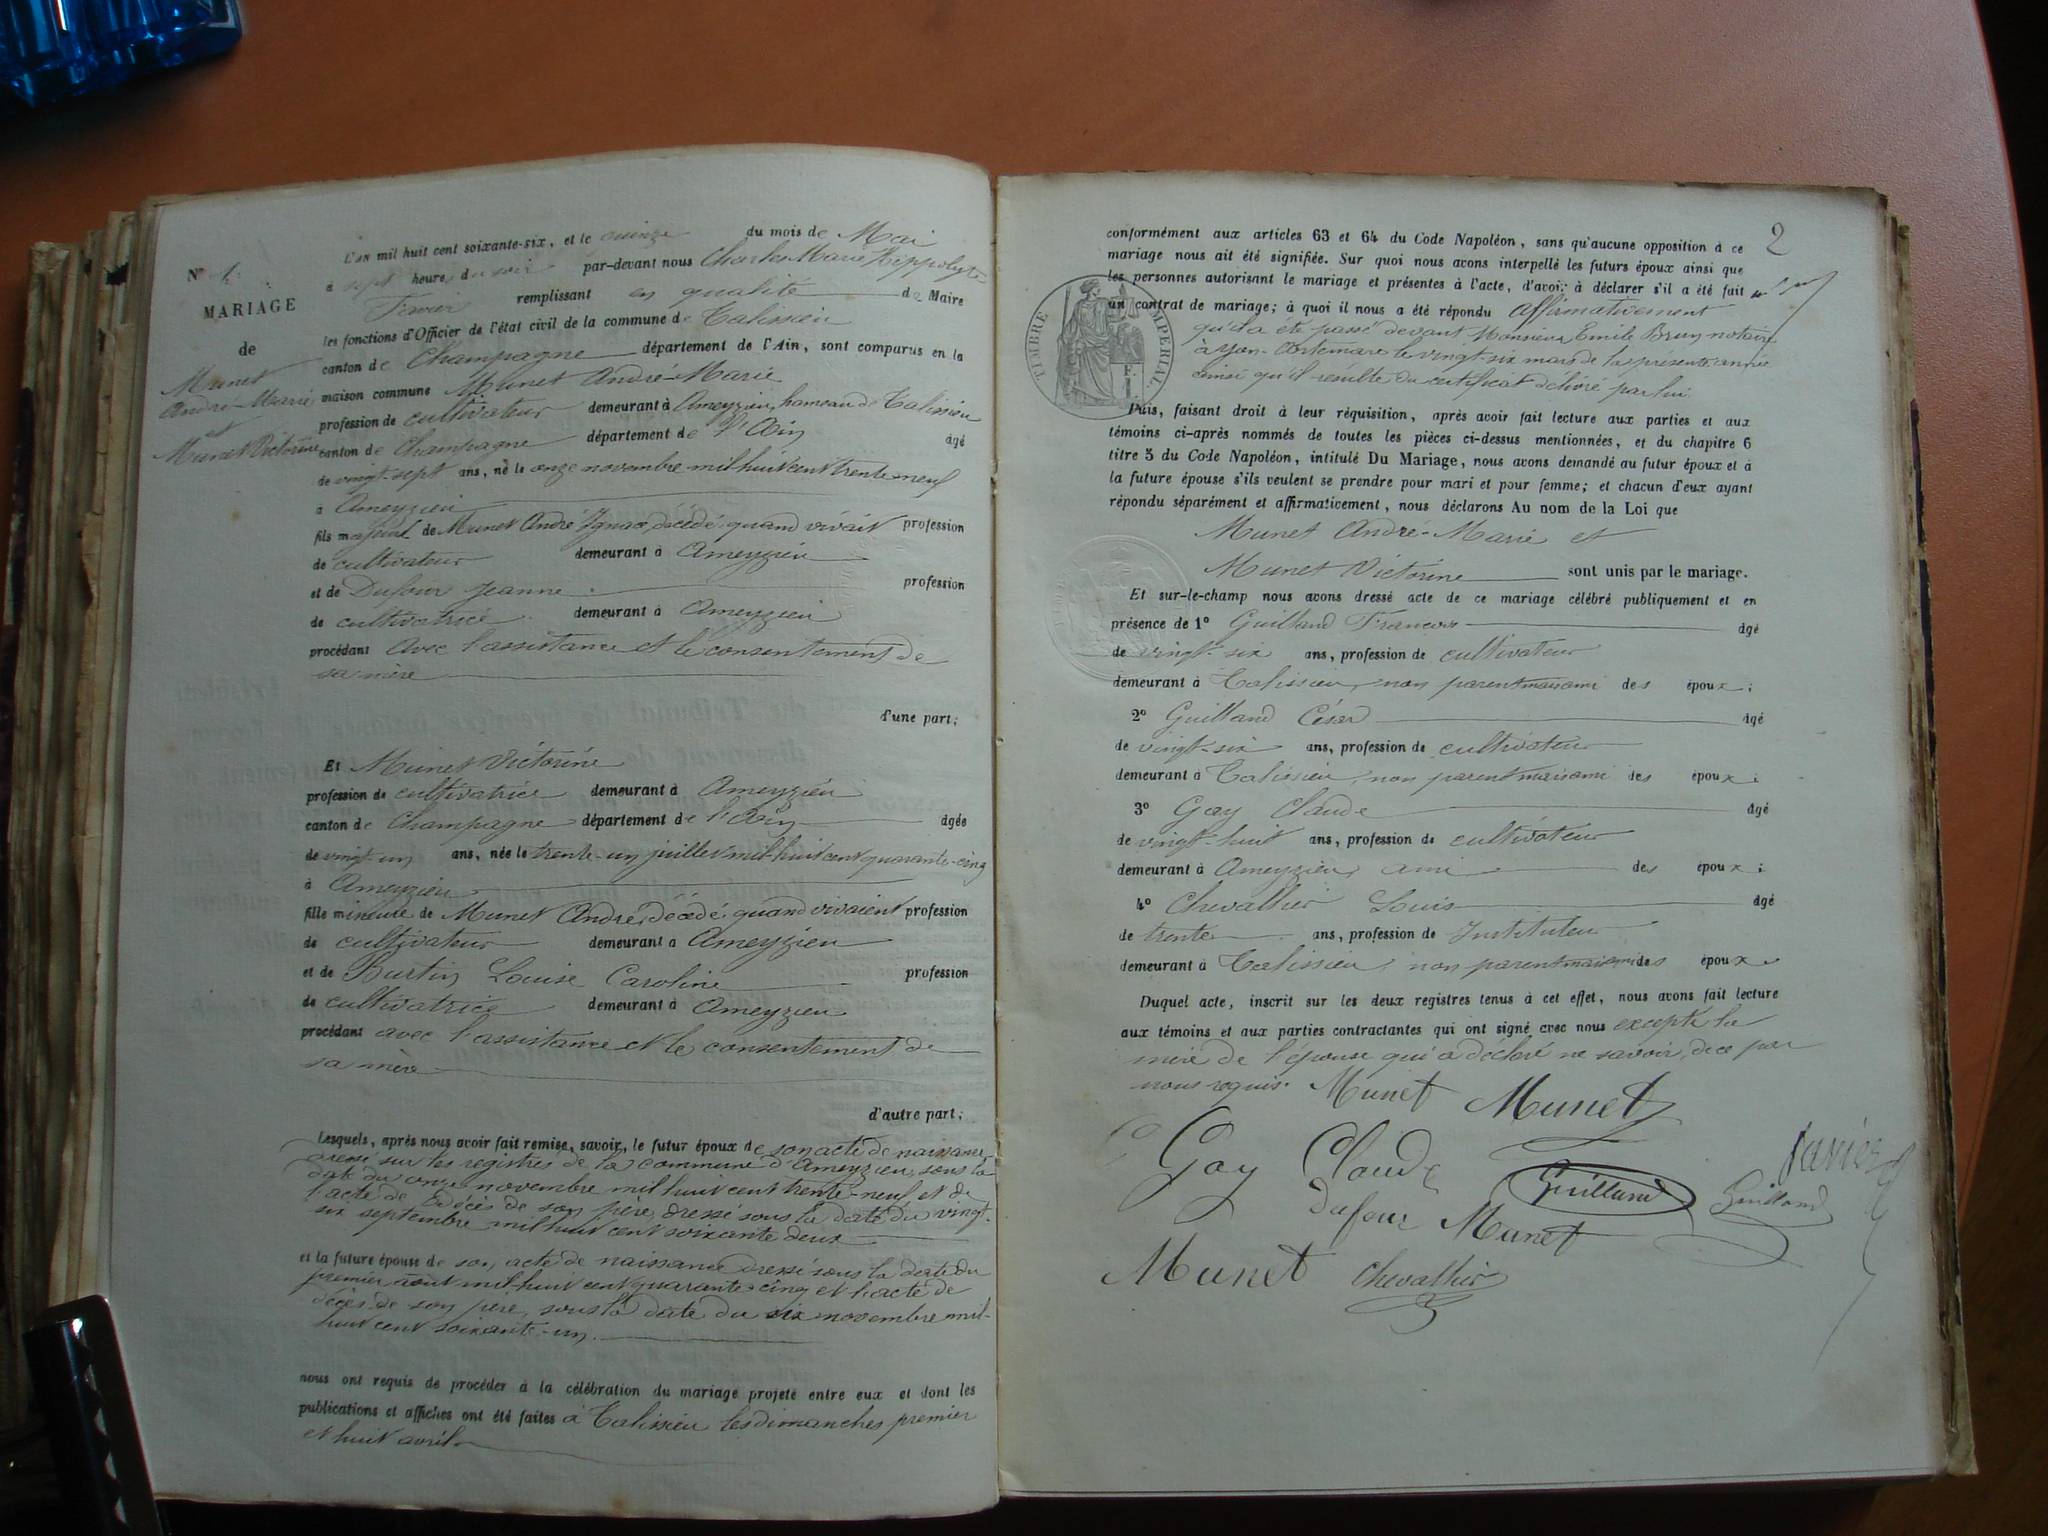 N° 1.
MARIAGE
de
Munet
André-Marie
et
Munet Victorine
L'AN mil huit cent soixante-six, et le quinze du mois de Mai
à sept heures du soir par-devant nous Charles Marie Hippolyte
remplissant en qualité de Maire
les fonctions d'Officier de l'état civil de la commune de Talissieu
canton de Champagne département de l'Ain, sont comparus en la
maison commune Munet André-Marie
profession de cultivateur demeurant à Ameyzieu, hameau de Talissieu
canton de Champagne département de l'Ain âgé
de vingt-sept ans, né le onze novembre mil huit cent trente-neuf
à Ameyzieu
fils majeur de Munet André Ignace, décédé, quand vivait profession
de cultivateur demeurant à Ameyzieu
et de Dufour Jeanne profession
de cultivatrice demeurant à Ameyzieu
procédant avec l'assistance et le consentement de
sa mère
d'une part;
Et Munet Victorine
profession de cultivatrice demeurant à Ameyzieu
canton de Champagne département de l'Ain âgée
de vingt-un ans, née le trente-un juillet mil huit cent quarante-cinq
à Ameyzieu
fille mineure de Munet André, décédé, quand vivaient profession
de cultivateur demeurant à Ameyzieu
et de Burtin Louise Caroline profession
de cultivatrice demeurant à Ameyzieu
procédant avec l'assistance et le consentement de
sa mère
d'autre part;
Lesquels, après nous avoir fait remise, savoir, le futur époux de son acte de naissance
dressé sur les registres de la commune d'Ameyzieu, sous la
date du onze novembre mil huit cent trente-neuf, et de
l'acte de décès de son père, dressé sous la date du vingt-
six septembre mil huit cent soixante deux
et la future épouse de son acte de naissance dressé sous la date du
premier août mil huit cent quarante-cinq et l'acte de
décès de son père, sous la date du six novembre mil-
huit cent soixante-un.
nous ont requis de procéder à la célébration du mariage projeté entre eux et dont les
publications et affiches ont été faites à Talissieu les dimanches premier
et huit avril
2
conformément aux articles 63 et 64 du Code Napoléon, sans qu'aucune opposition à ce
mariage nous ait été signifiée. Sur quoi nous avons interpellé les futurs époux ainsi que
les personnes autorisant le mariage et présentes à l'acte, d'avoir à déclarer s'il a été fait
un contrat de mariage; à quoi il nous a été répondu affirmativement
qu'il a été passé devant Monsieur Emile Brun notaire
à Yon-Artemare le vingt-six mars de la présente année
ainsi qu'il résulte du certificat délivré par lui.
TIMBRE IMPÉRIAL.
1 F.
Puis, faisant droit à leur réquisition, après avoir fait lecture aux parties et aux
témoins ci-après nommés de toutes les pièces ci-dessus mentionnées, et du chapitre 6
titre 5 du Code Napoléon, intitulé Du Mariage, nous avons demandé au futur époux et à
la future épouse s'ils veulent se prendre pour mari et pour femme; et chacun d'eux ayant
répondu séparément et affirmativement, nous déclarons Au nom de la Loi que
Munet André-Marie et
Munet Victorine sont unis par le mariage.
Et sur-le-champ nous avons dressé acte de ce mariage célébré publiquement et en
présence de 1° Guilland François âgé
de vingt-six ans, profession de cultivateur
demeurant à Talissieu, non parent mais ami des époux;
2° Guilland César âgé
de vingt-six ans, profession de cultivateur
demeurant à Talissieu, non parent mais ami des époux;
3° Gay Claude âgé
de vingt-huit ans, profession de cultivateur
demeurant à Ameyzieu, ami des époux;
4° Chevallier Louis âgé
de trente ans, profession de Instituteur
demeurant à Talissieu, non parent mais ami des époux.
Duquel acte, inscrit sur les deux registres tenus à cet effet, nous avons fait lecture
aux témoins et aux parties contractantes qui ont signé avec nous excepté la
mère de l'épouse qui a déclaré ne savoir, de ce par
nous requis. Munet Munet
Gay Claude Guilland Guilland
Dufour Munet
Munet Chevallier